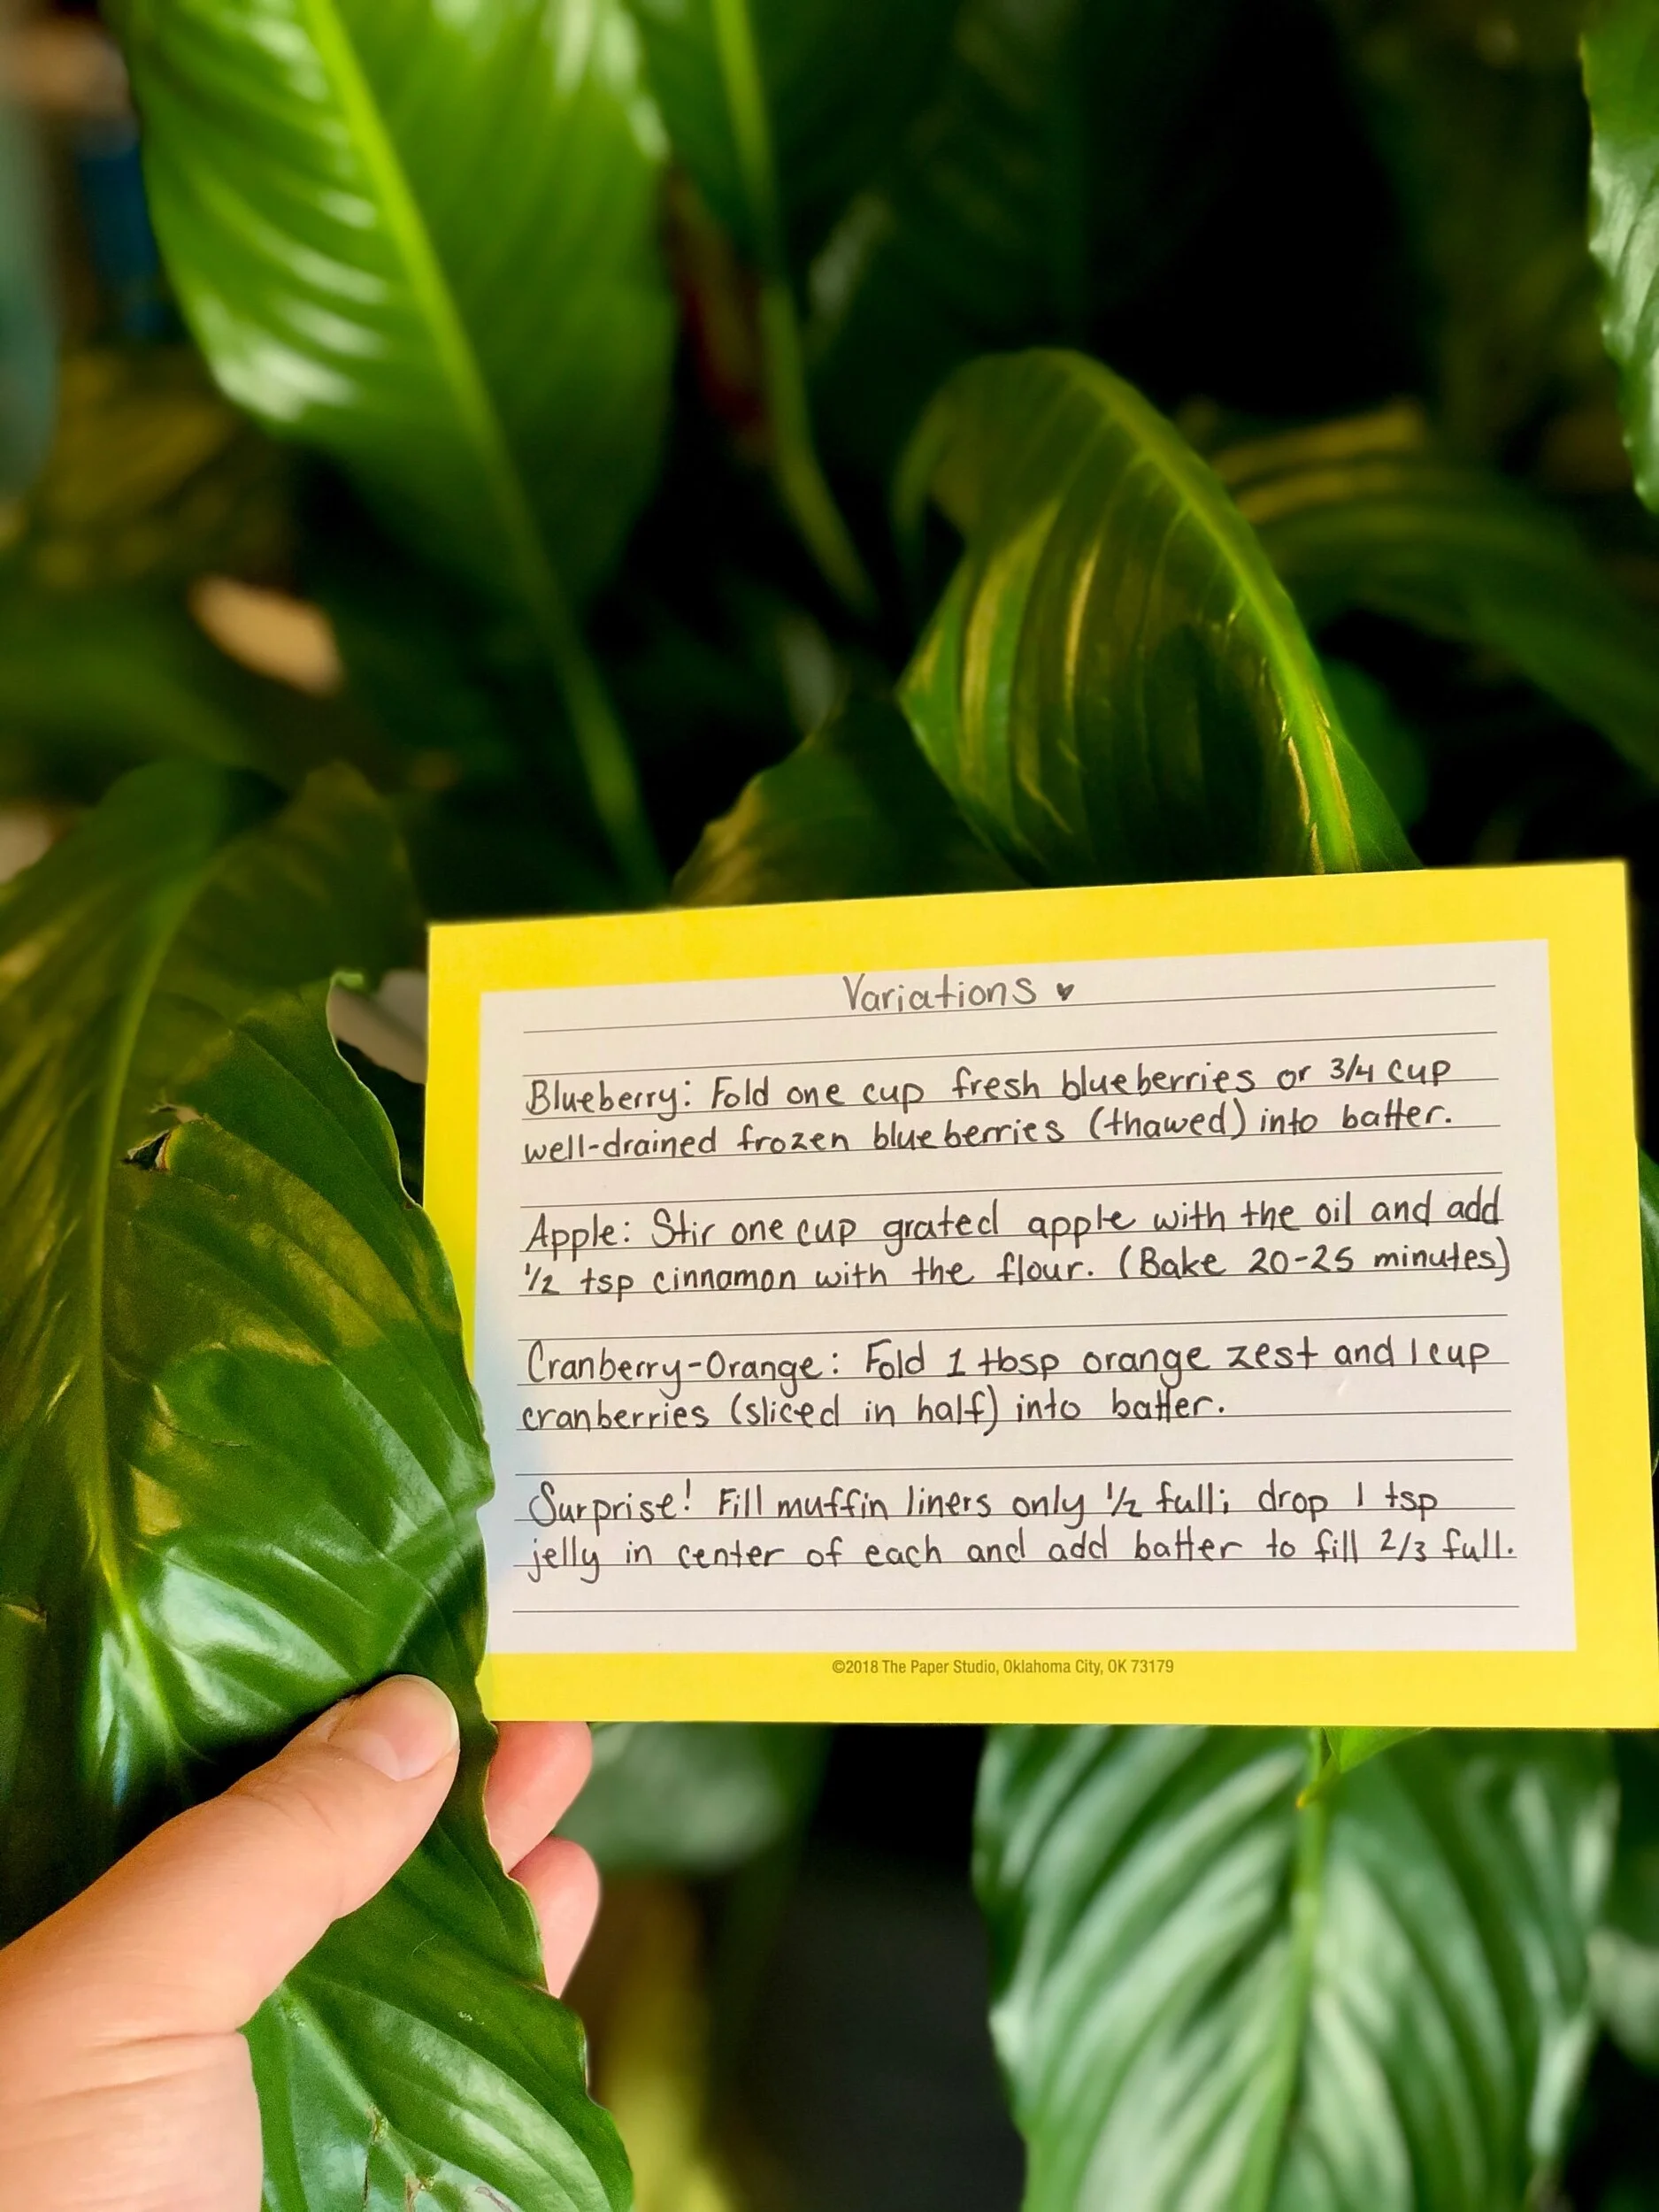 Variations ♥
Blueberry: Fold one cup fresh blueberries or 3/4 cup
well-drained frozen blueberries (thawed) into batter.
Apple: Stir one cup grated apple with the oil and add
1/2 tsp cinnamon with the flour. (Bake 20-25 minutes)
Cranberry-Orange: Fold 1 tbsp orange zest and 1 cup
cranberries (sliced in half) into batter.
Surprise! Fill muffin liners only 1/2 full; drop 1 tsp
jelly in center of each and add batter to fill 2/3 full.
©2018 The Paper Studio, Oklahoma City, OK 73179